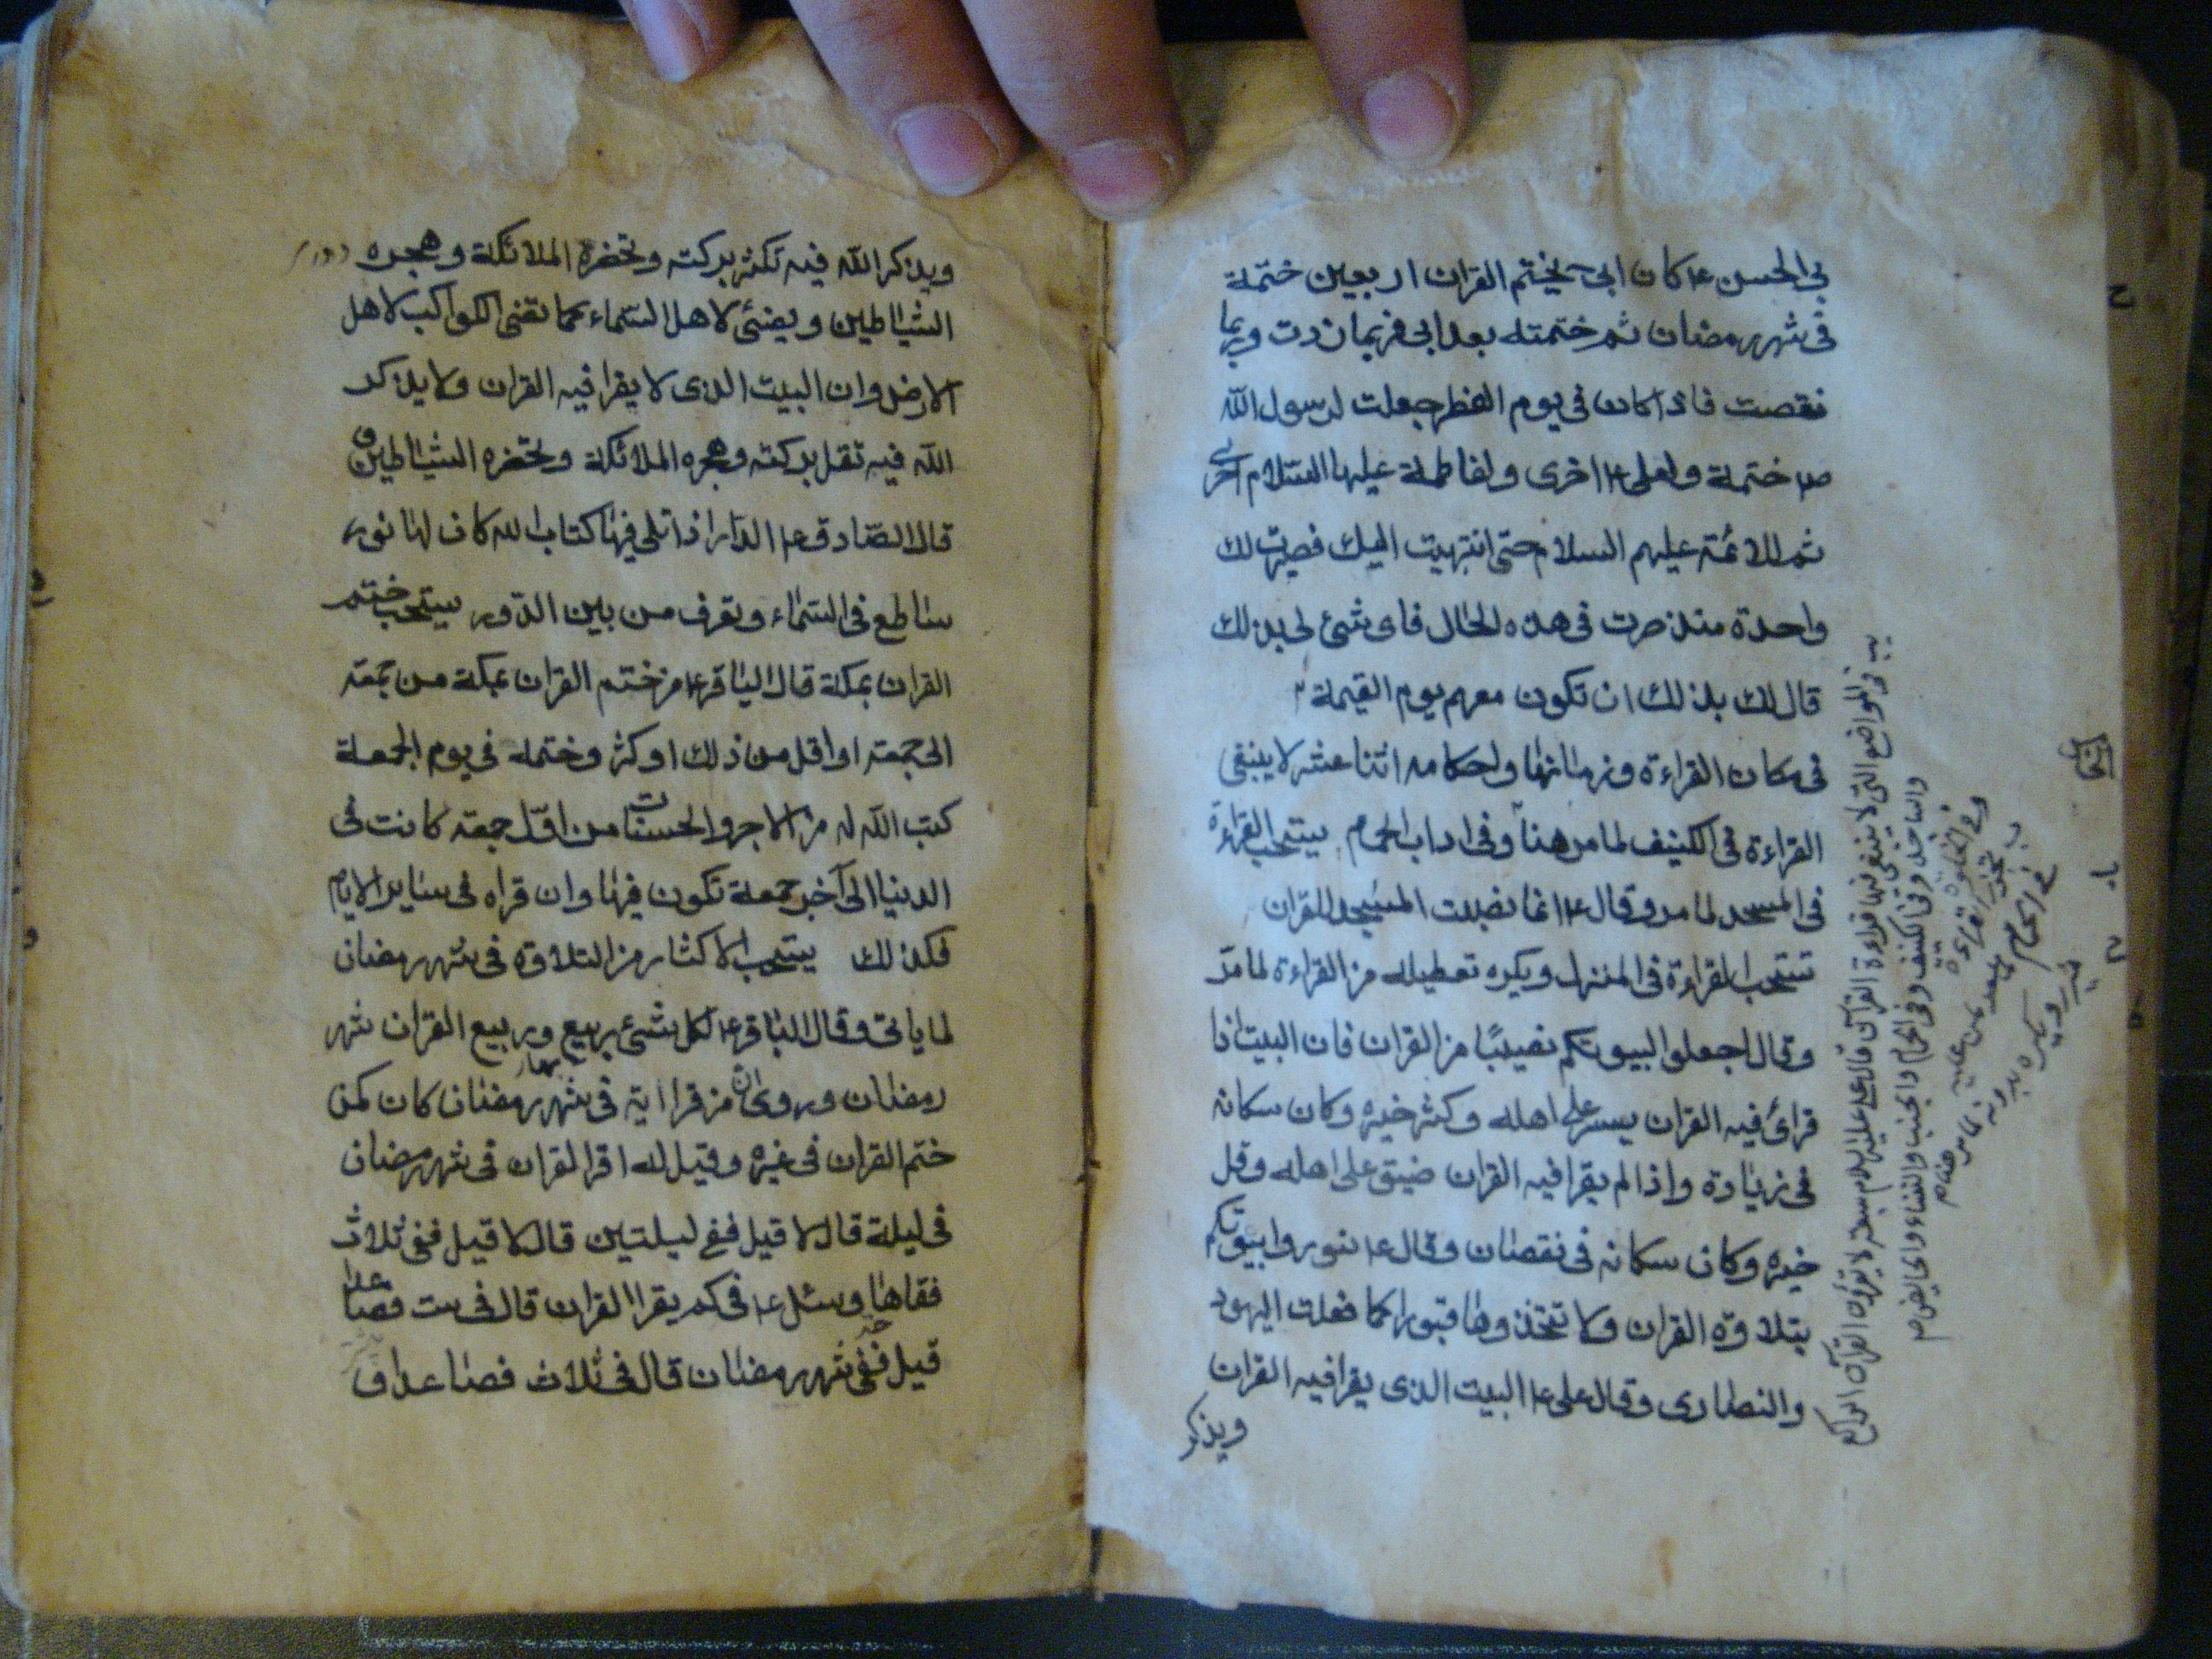 بى الحسن ع كان ابى يختم القران اربعين ختمة
فى شهر رمضان ثم ختمته بعد ابى فربما زدت وربما
نقصت فاذا كان فى يوم الفطر جعلت لرسول الله
ص ختمة ولعلى ع اخرى ولفاطمة عليها السلام اخرى
ثم للائمة عليهم السلام حتى انتهيت اليك فصيرت لك
واحدة منذ صرت فى هذه الحال فاى شئ لى بذلك
قال لك بذلك ان تكون معهم يوم القيمة
فى مكان القراءة وزمانها واحكامه اثنا عشر لا ينبغى
القراءة فى الكنيف لما مر هنا وفى اداب الحمام يستحب القراءة
فى المسجد لما مر وقال ع انما نصبت المساجد للقران
تستحب القراءة فى المنزل ويكره تعطيله من القراءة لما مر
وقال اجعلوا لبيوتكم نصيبًا من القران فان البيت اذا
قرائ فيه القران يسر على اهله وكثر خيره وكان سكانه
فى زيادة واذا لم يقرا فيه القران ضيق على اهله وقل
خيره وكان سكانه فى نقصان وقال ع نوروا بيوتكم
بتلاوة القران ولا تتخذوها قبورا كما فعلت اليهود
والنصارى وقال على ع البيت الذى يقرا فيه القران
ويذكر
فى المواضع التى لا ينبغى فيها قراءة القرآن قال على عليه السلام سبعة لا يقرؤن القرآن الراكع
والساجد وفى الكنيف وفى الحمام والجنب والنفساء والحايض م
ويذكر الله فيه تكثر بركته وتحضره الملائكة وهجره
الشياطين ويضئ لاهل السماء كما تضئ الكواكب لاهل
الارض وان البيت الذى لا يقرا فيه القران ولا يذكر
الله فيه تقل بركته وهجره الملائكة وتحضره الشياطين و
قال الصادق ع الدار اذا تلى فيها كتاب الله كان لها نور
ساطع فى السماء وتعرف من بين الدور يستحب ختم
القران بمكة قال الباقر ع من ختم القران بمكة من جمعة
الى جمعة او اقل من ذلك او كثر وختمه فى يوم الجمعة
كتب الله له من الاجر والحسنات من اول جمعة كانت فى
الدنيا الى آخر جمعة تكون فيها وان قراه فى ساير الايام
فكذلك يستحب الاكثار من التلاوة فى شهر رمضان
لما ياتى وقال الباقر ع لكل شئ ربيع وربيع القران شهر
بهار
رمضان وروى ان من قرا اية فى شهر رمضان كان كمن
ختم القران فى غيره وقيل له اقرا القران فى شهر رمضان
فى ليلة قال لا قيل ففى ليلتين قال لا قيل ففى ثلاث
فقاها وسئل ع فى كم يقرا القران قال فى ست فصاعدا
قيل ففى شهر رمضان قال فى ثلاث فصاعدا ف